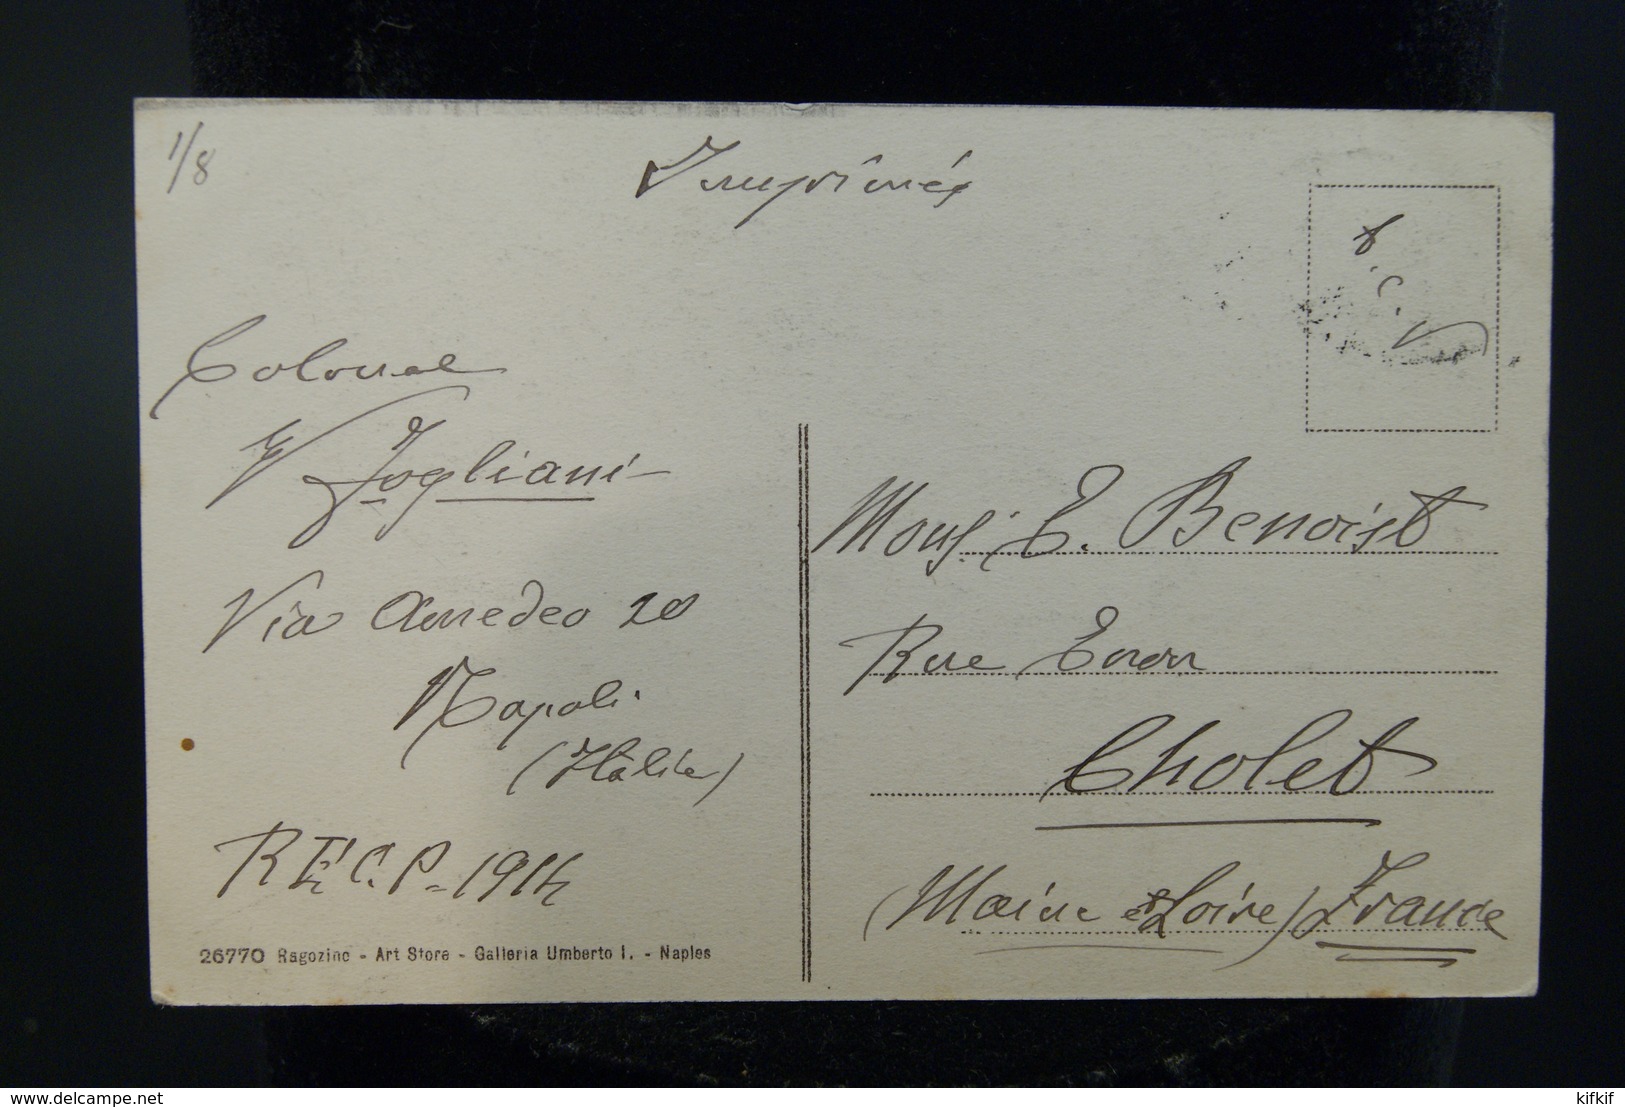 1/8
Imprimés
T.C.V
Colonel
V. Fogliani
Via Amedeo 20
Napoli
(Italie)
R E C. P. 1914
26770 Ragozino - Art Store - Galleria Umberto I. - Naples
Mons. E. Benoist
Rue
Cholet
(Maine et Loire) France
delcampe.net
kifkif